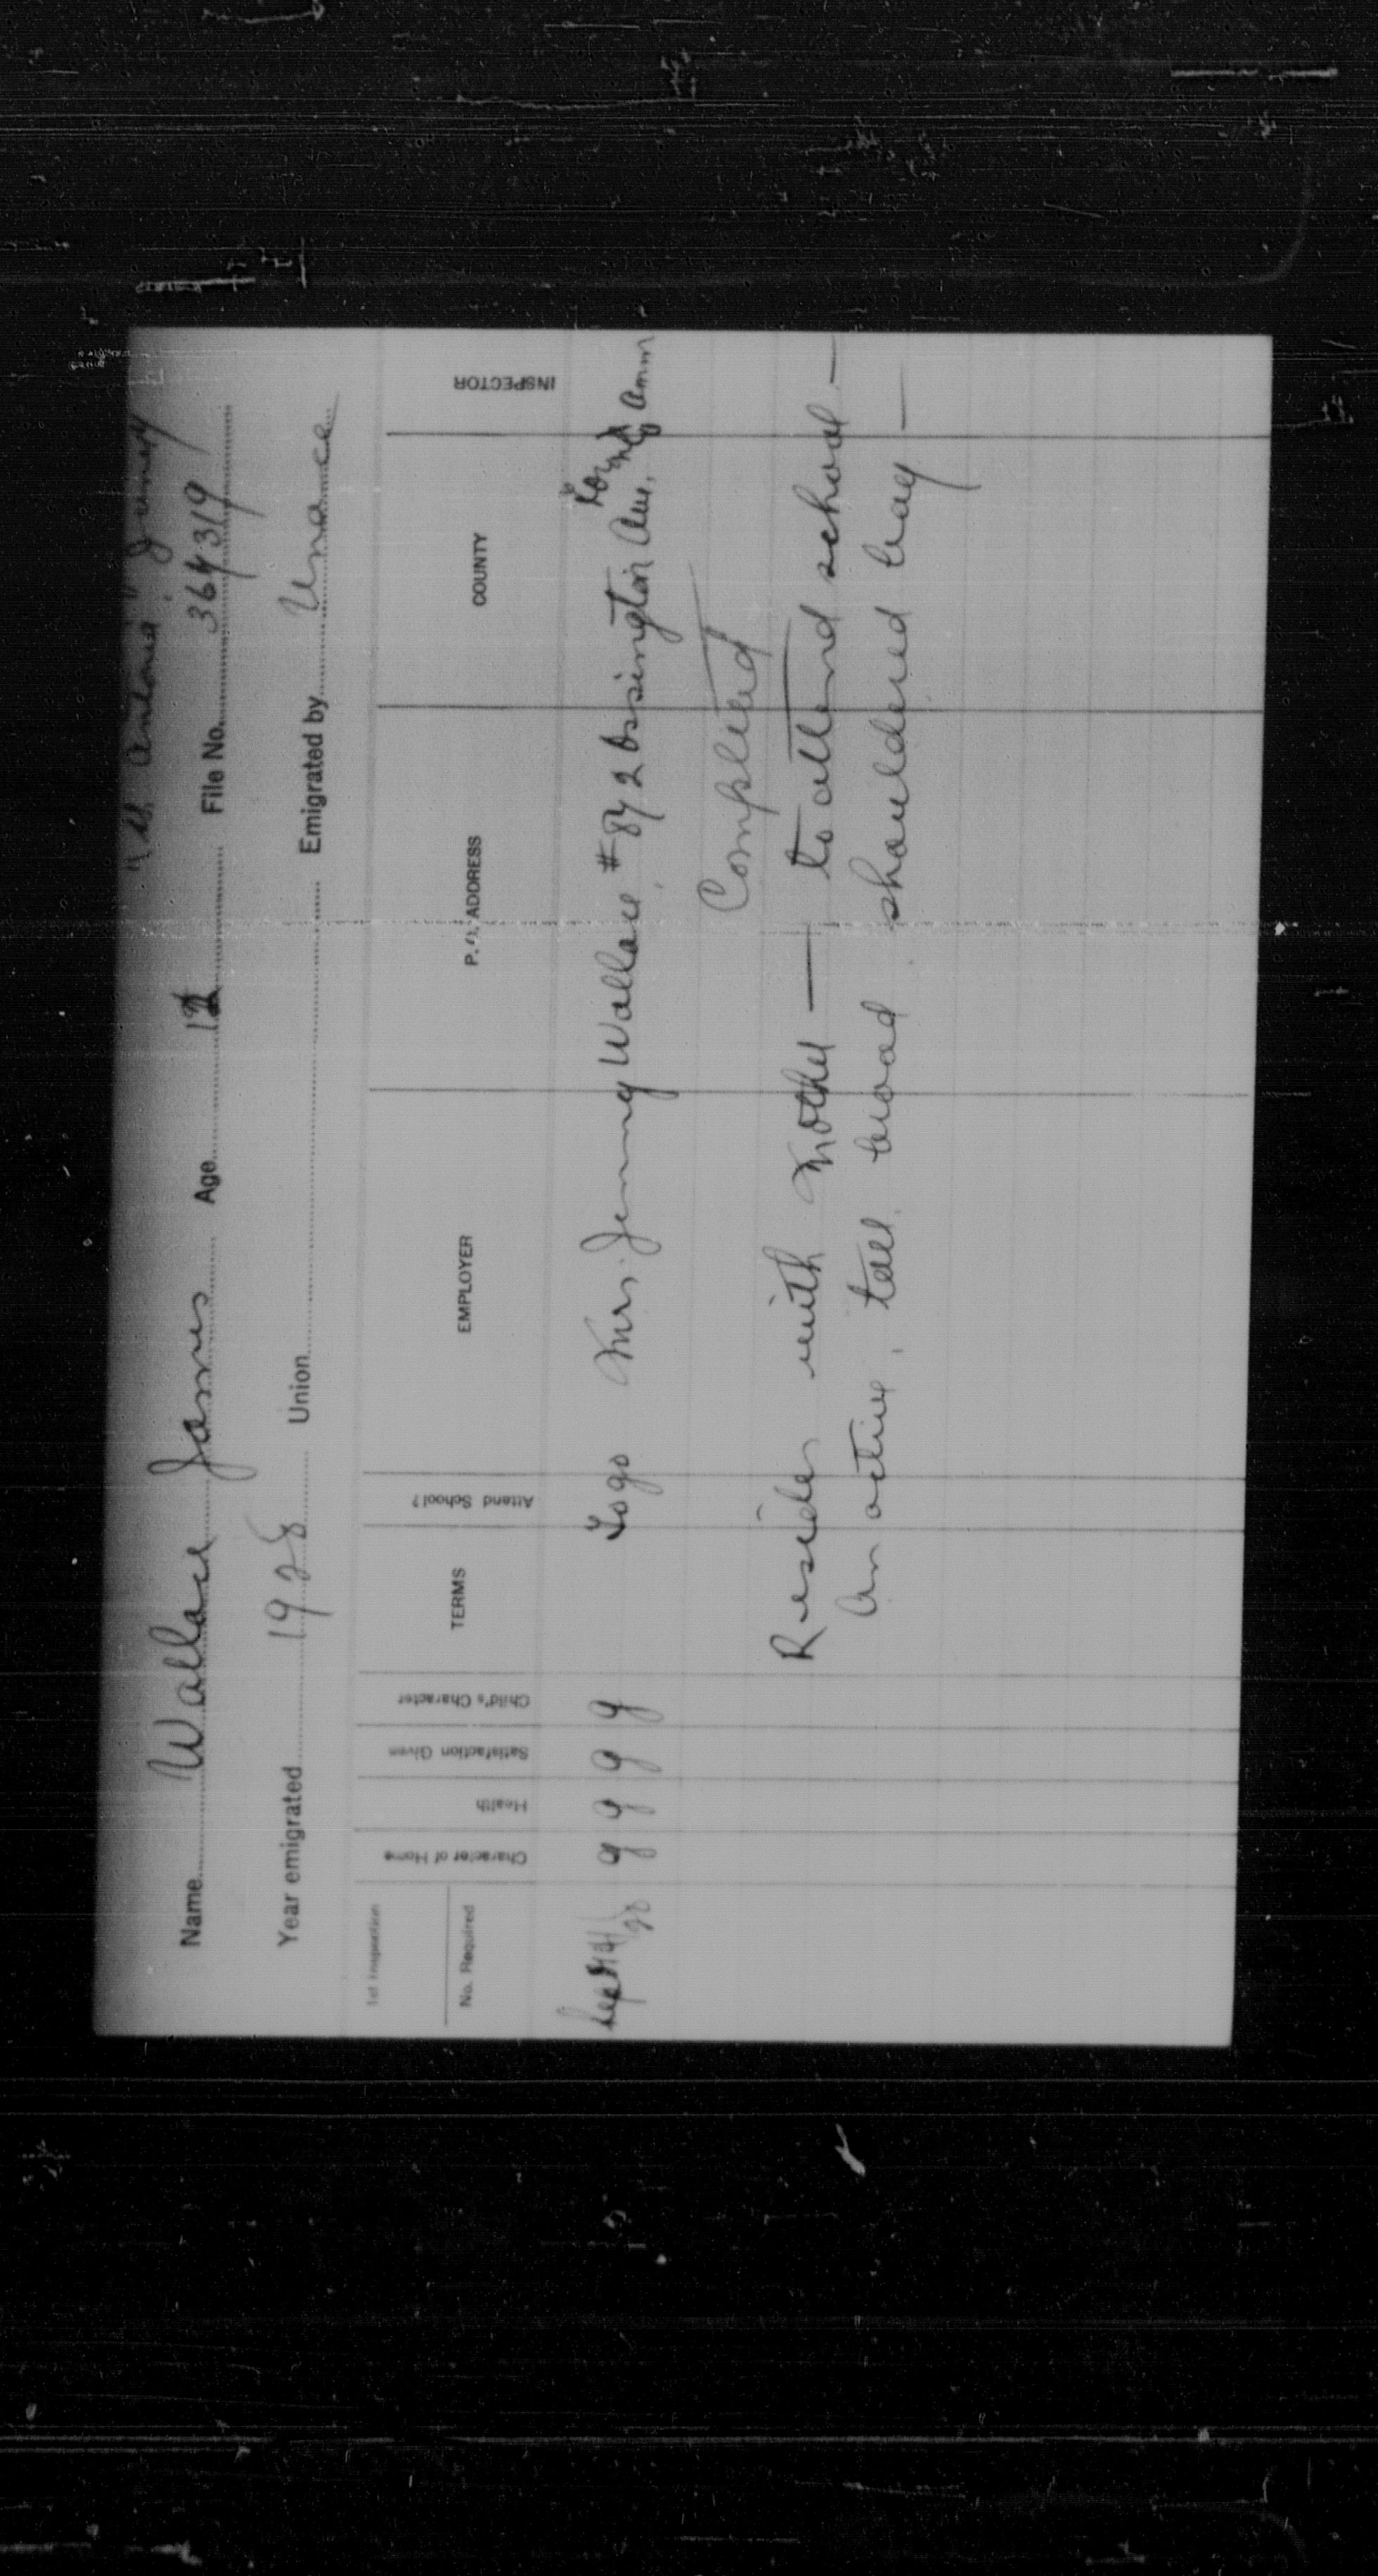 S.S. Antonia
Name Wallace James Age 12 File No. 364319
Year emigrated 1928 Union Emigrated by Unacc
1st Inspection
No. Required
Character of Home
Health
Satisfaction Given
Child's Character
TERMS
Attend School?
EMPLOYER
P. O. ADDRESS
COUNTY
INSPECTOR
Sept 28 g g g g To go Mrs. Jenny Wallace, #872 Ossington Ave. Toronto
Completed
Resides with Mother — to attend school —
An active, tall broad shouldered boy —